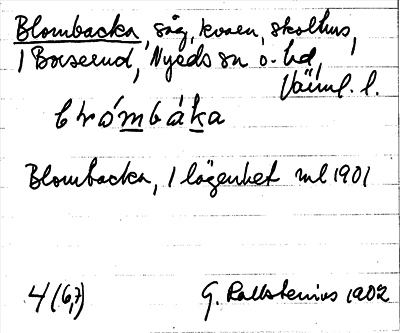 Blombacka, såg, kvarn, skolhus,
1 Borserud, Nyeds sn o. hd,
Värml. l.
Blombacka, 1 lägenhet ml 1901
4 (6,7) G. Kallstenius 1902